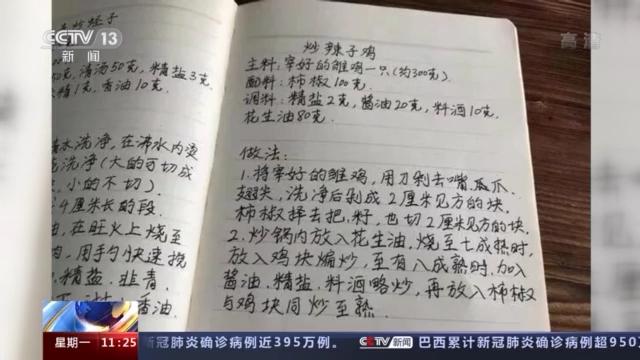 CCTV 13
新闻
高清
清汤50克，精盐3克
香油10克.
水洗净，在沸水内烫
洗净(大的可切成
小的不切).
4厘米长的段.
在旺火上烧至
用手勺快速搅
精盐.韭青.
香油.
炒辣子鸡
主料:宰好的雏鸡一只(约300克).
配料:柿椒100克.
调料:精盐2克,酱油20克,料酒10克.
花生油80克.
做法:
1.将宰好的雏鸡,用刀剁去嘴、瓜爪、
翅尖,洗净后剁成2厘米见方的块.
柿椒择去把,籽,也切2厘米见方的块.
2.炒锅内放入花生油,烧至七成热时,
放入鸡块煸炒,至有八成熟时,加入
酱油、精盐、料酒略炒,再放入柿椒
与鸡块同炒至熟.
星期一 11:25 新冠肺炎确诊病例近395万例。 CCTV 新闻 巴西累计新冠肺炎确诊病例超950